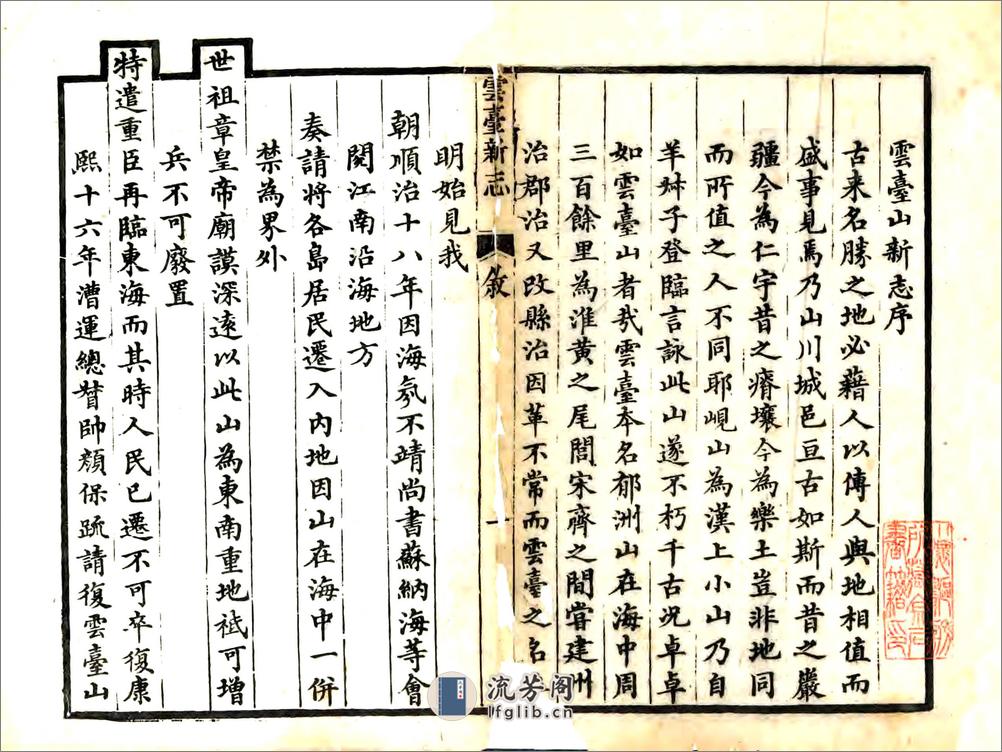 雲臺山新志序
古来名勝之地必藉人以傳人與地相值而
盛事見焉乃山川城邑亘古如斯而昔之巖
疆今為仁宇昔之瘠壤今為樂土豈非地同
而所值之人不同耶峴山為漢上小山乃自
羊叔子登臨言詠此山遂不朽千古況卓卓
如雲臺山者哉雲臺本名郁洲山在海中周
三百餘里為淮黃之尾閭宋齊之間嘗建州
治郡治又改縣治因革不常而雲臺之名
雲臺新志
敘
一
明始見我
朝順治十八年因海氛不靖尚書蘇納海等會
閱江南沿海地方
奏請將各島居民遷入内地因山在海中一併
禁為界外
世祖章皇帝廟謨深遠以此山為東南重地祗可增
兵不可廢置
特遣重臣再臨東海而其時人民已遷不可卒復康
熙十六年漕運總督帥顏保疏請復雲臺山
流芳阁
lfglib.cn